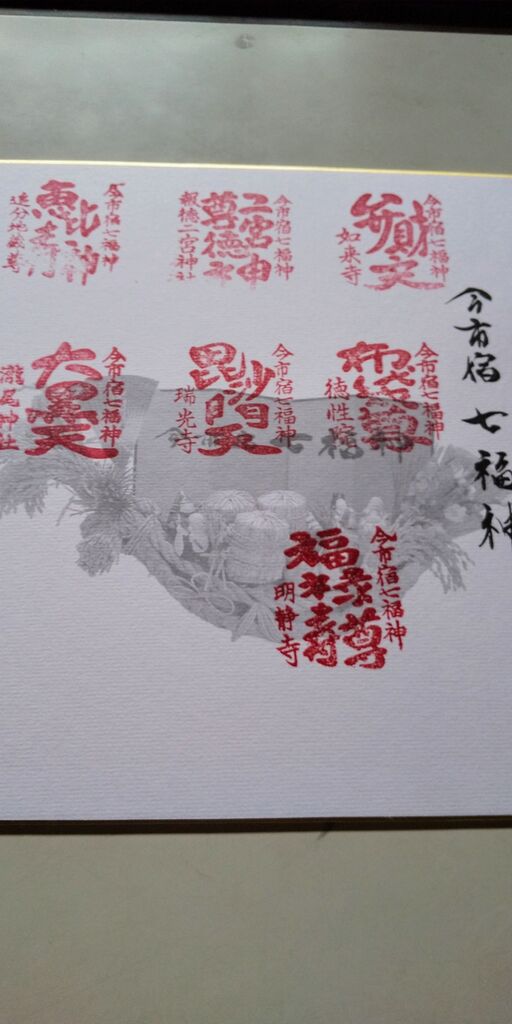 今市宿 七福神
今市宿七福神
弁財天
如来寺
今市宿七福神
二宮申
尊徳
報徳二宮神社
今市宿七福神
恵比寿神
追分地蔵尊
今市宿七福神
布袋尊
徳性院
今市宿七福神
毘沙門天
瑞光寺
今市宿七福神
大黒天
瀧尾神社
今市宿七福神
福禄寿尊
明静寺
七福神